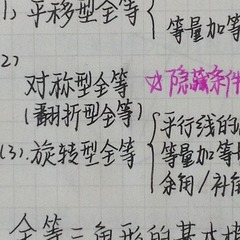 1) 平移型全等
等量加等
2)
对称型全等 ☆隐藏条件
(翻折型全等)
平行线的
(3).旋转型全等 等量加等
余角/补角
全等三角形的基本